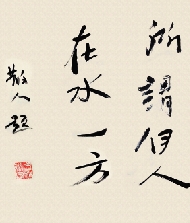 所謂伊人
在水一方
散人題